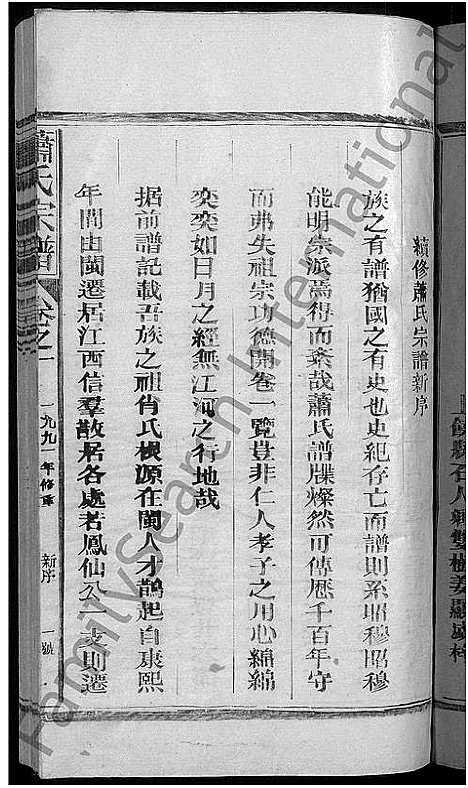 續修蕭氏宗譜新序
族之有譜猶國之有史也史紀存亡而譜則系昭穆昭穆
能明宗派焉得而紊哉蕭氏譜牒燦然可傳歷千百年守
而弗失祖宗功德開卷一覽豈非仁人孝子之用心綿綿
奕奕如日月之經無江河之行地哉
据前譜記載吾族之祖肖氏根源在閩人才鵲起自康熙
年間由閩遷居江西信羣散居各處若鳳仙公一支則遷
蕭氏宗譜 卷之一 一九九一年修重 新序 一號
FamilySearch International